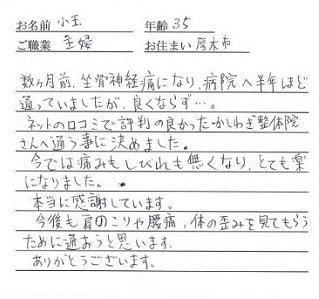 お名前 小玉 年齢 35
ご職業 主婦 お住まい 厚木市
数ヶ月前、坐骨神経痛になり、病院へ半年ほど
通っていましたが、良くならず…。
ネットの口コミで評判の良かったかしわぎ整体院
さんへ通う事に決めました。
今では痛みもしびれも無くなり、とても楽
になりました。
本当に感謝しています。
今後も肩のこりや腰痛、体の歪みを見てもらう
ために通おうと思います。
ありがとうございます。